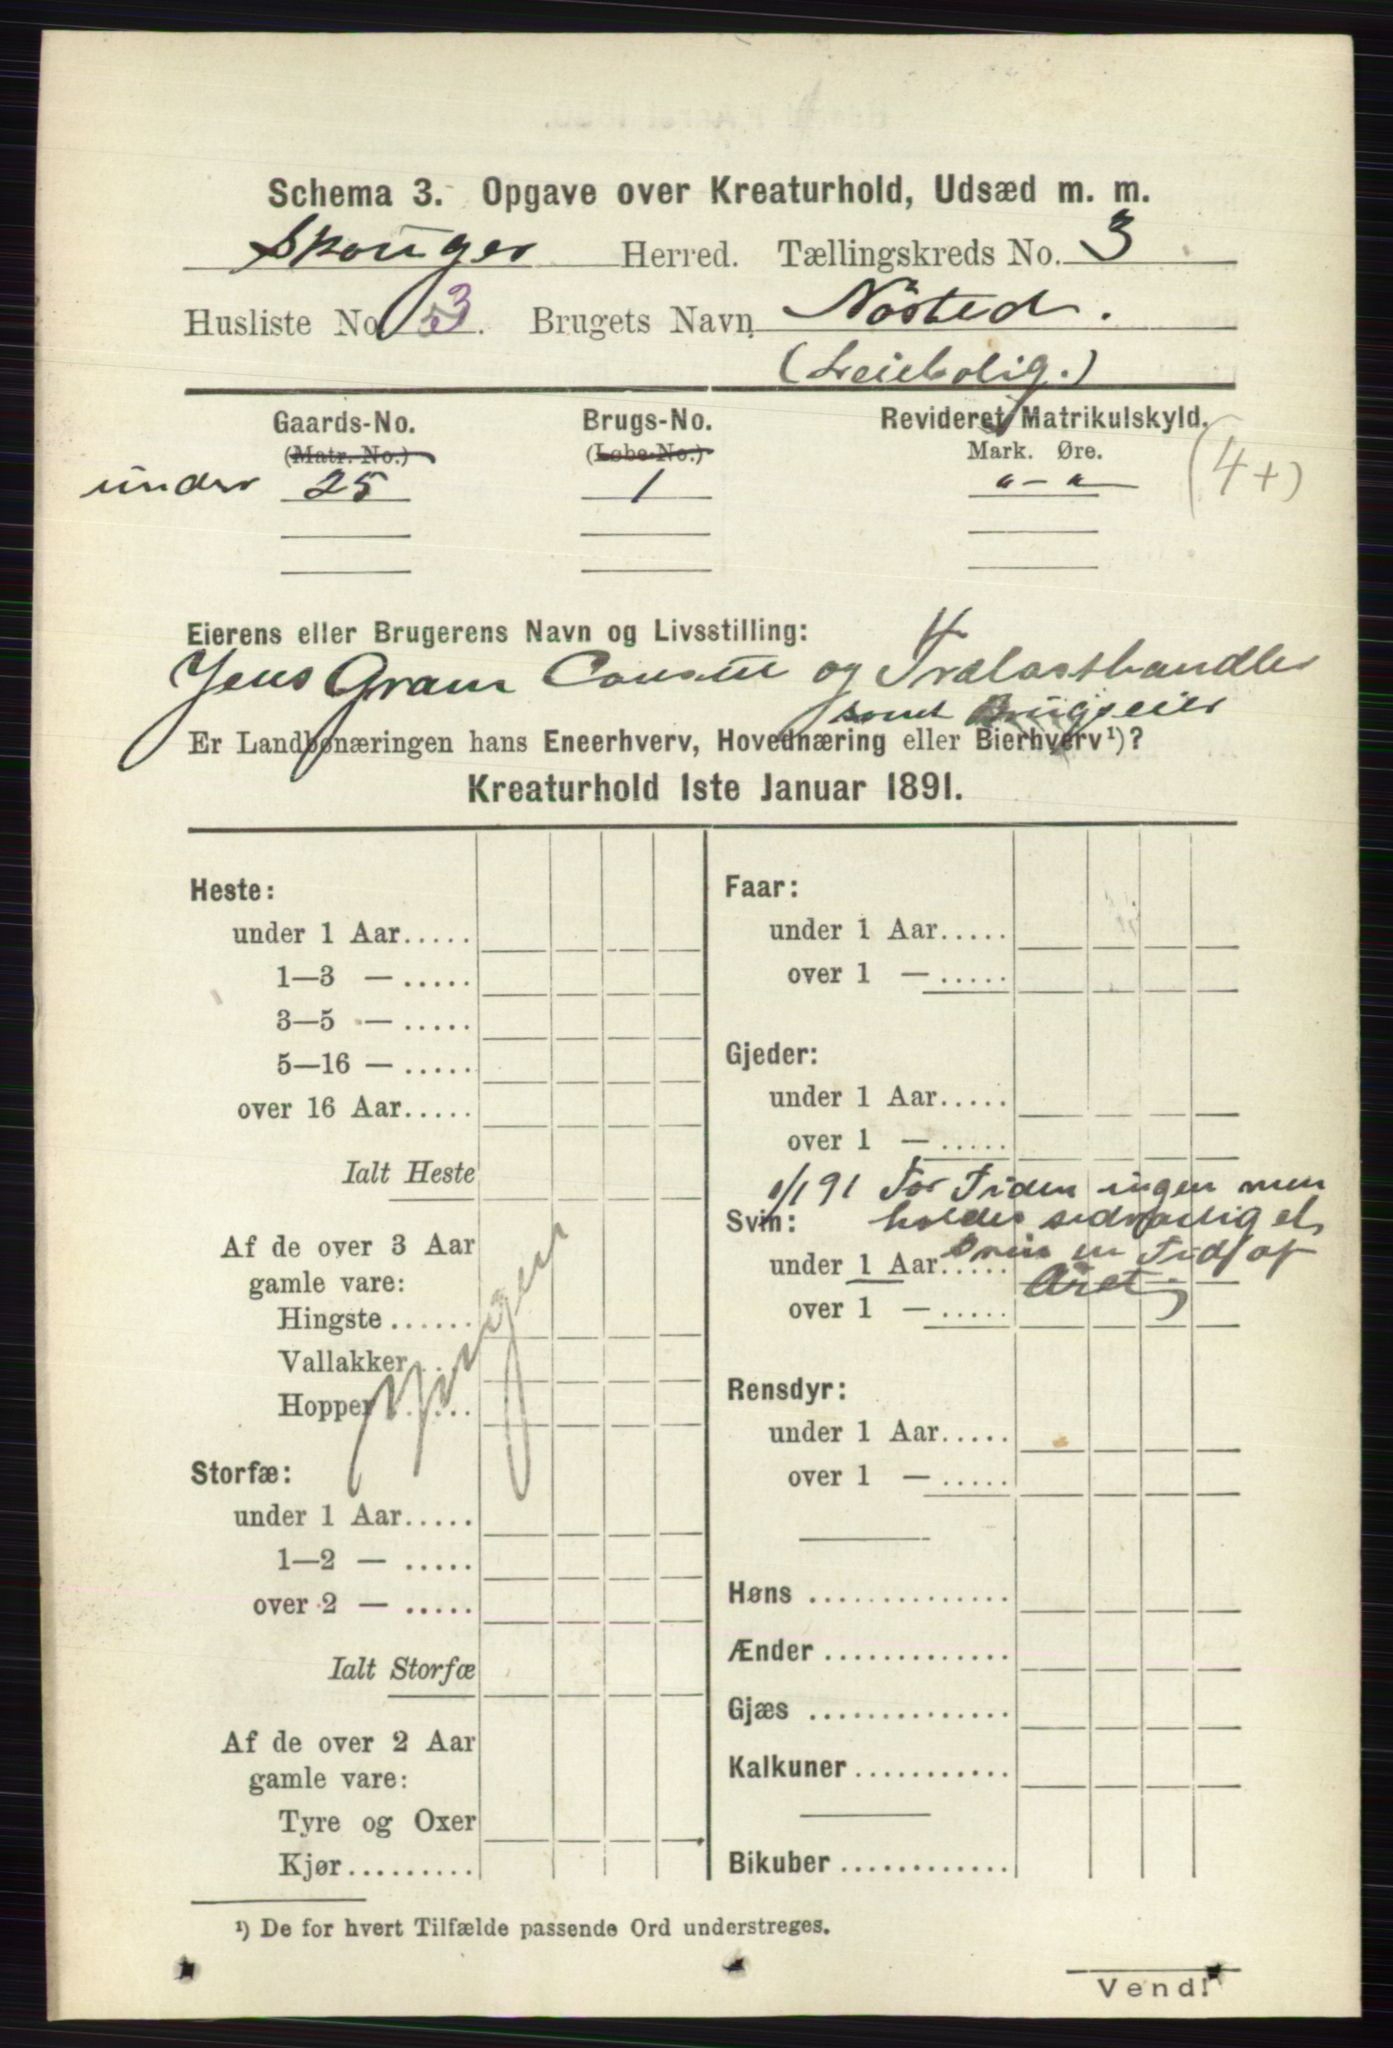 Schema 3. Opgave over Kreaturhold, Udsæd m. m.
Skouger Herred. Tællingskreds No. 3
Husliste No. 3. Brugets Navn Nøsted.
(Leiebolig.)
Gaards-No. Brugs-No. Revideret Matrikulskyld.
(Matr. No.) (Løbe-No.) Mark. Øre.
under 25 1 " - " (4+)
Eierens eller Brugerens Navn og Livsstilling:
Jens Gram Consul og Trælasthandler
samt Brugseier
Er Landbonæringen hans Eneerhverv, Hovednæring eller Bierhverv¹)?
Kreaturhold 1ste Januar 1891.
Heste:
under 1 Aar.....
1—3 — .....
3—5 — .....
5—16 — .....
over 16 Aar.....
Ialt Heste
Af de over 3 Aar
gamle vare:
Hingste ......
Vallakker..
Hopper ......
Ingen
Storfæ:
under 1 Aar.....
1—2 — .....
over 2 — .....
Ialt Storfæ
Af de over 2 Aar
gamle vare:
Tyre og Oxer
Kjør.........
Faar:
under 1 Aar.....
over 1 — .....
Gjeder:
under 1 Aar.....
over 1 — .....
1/1 91 For Tiden ingen men
Svin: holdes sedvanlig et
under 1 Aar..... Svin en Tid af
over 1 — ..... Aaret
Rensdyr:
under 1 Aar.....
over 1 — .....
Høns ..............
Ænder .............
Gjæs ..............
Kalkuner ...........
Bikuber .............
¹) De for hvert Tilfælde passende Ord understreges.
Vend!